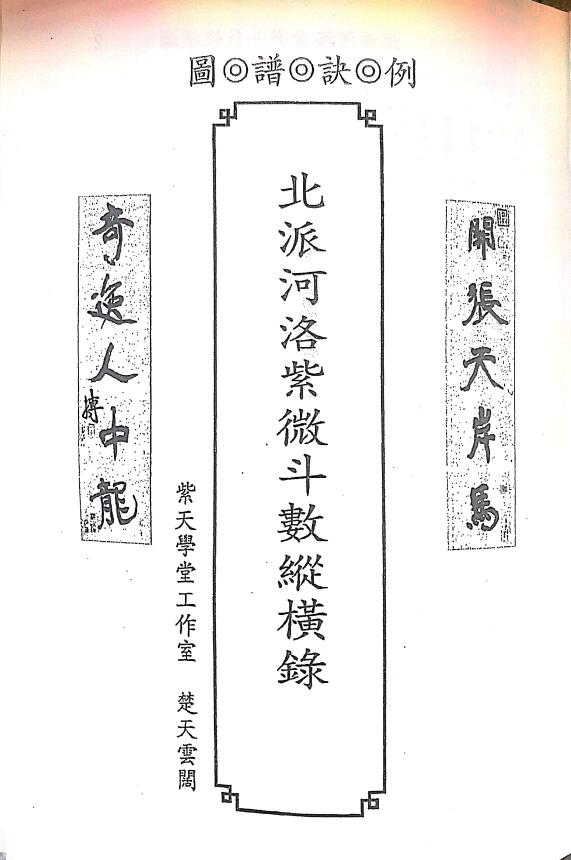 圖◎譜◎訣◎例
開張天岸馬
北派河洛紫微斗數縱橫錄
紫天學堂工作室 楚天雲闊
奇逸人中龍
摶